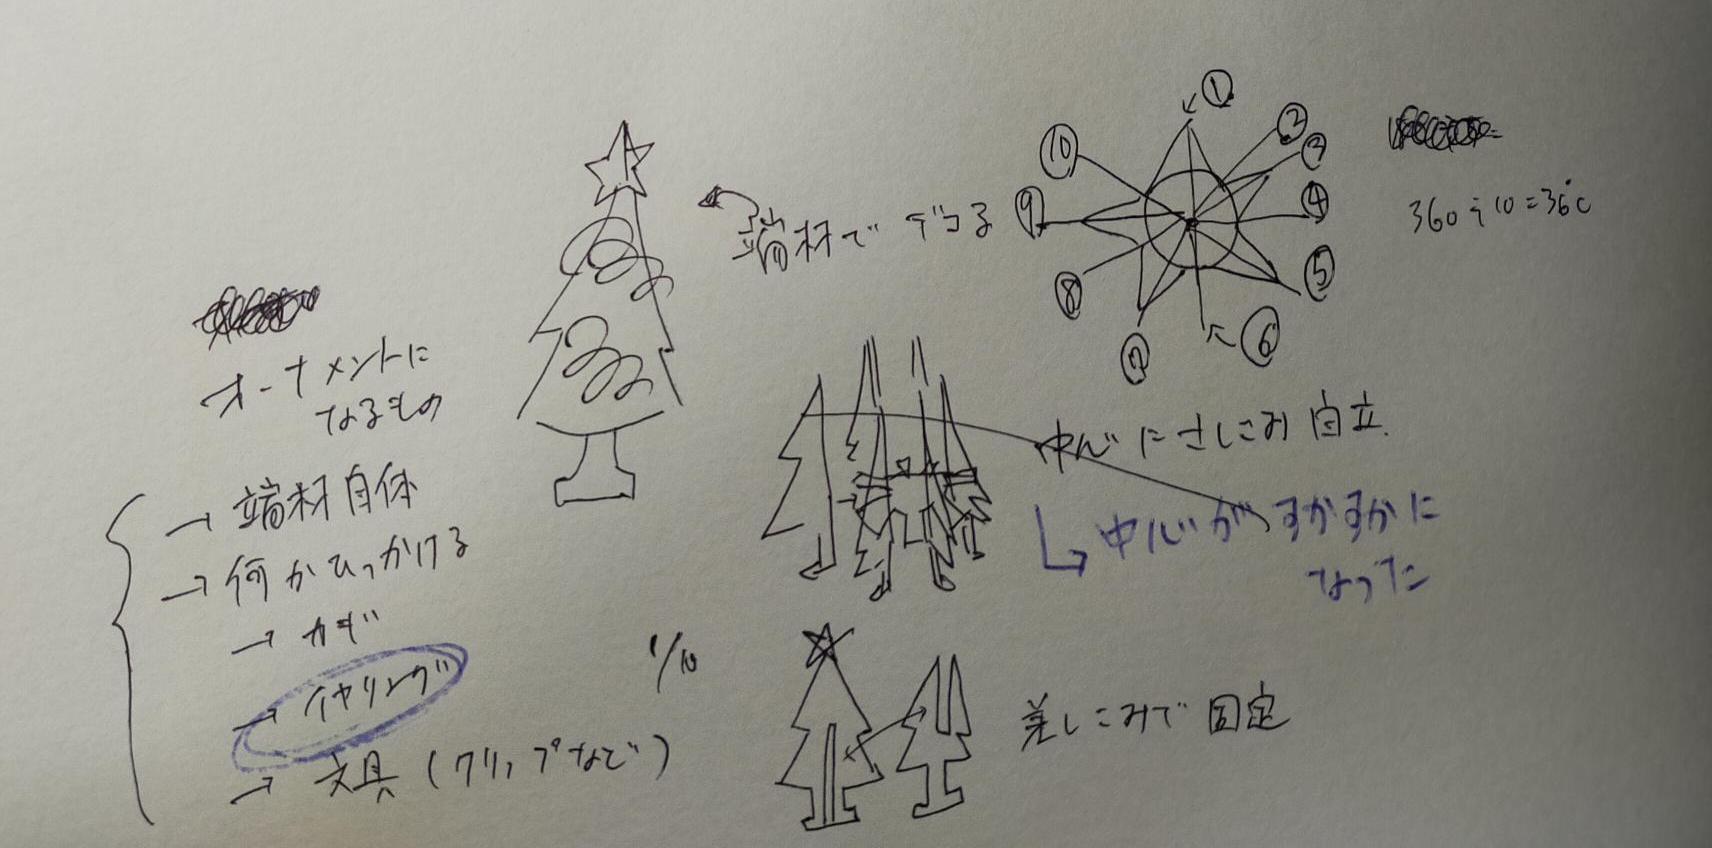 オーナメントに
なるもの
→ 端材自体
→ 何かひっかける
→ カギ
→ イヤリング
→ 文具（クリップなど）
端材でデコる
①
②
③
④
⑤
⑥
⑦
⑧
⑨
⑩
360÷10=36°
中心にさしこみ自立.
↳ 中心がすかすかに
なった
1/10
差しこみで固定